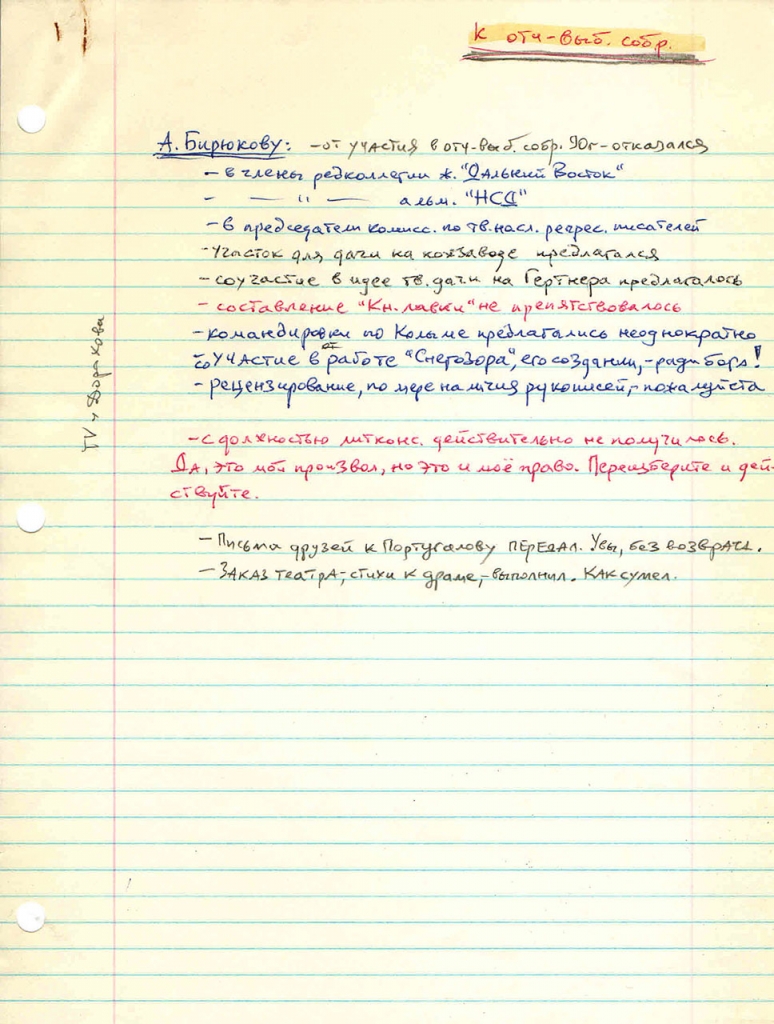 к отч-выб. собр.
А. Бирюкову: – от участия в отч-выб. собр. 90г – отказался
– в члены редколлегии ж. "Дальний Восток"
– — " — альм. "НСД"
– в председатели комисс. по тв. насл. репрес. писателей
– участок для дачи на кожзаводе предлагался
– соучастие в идее тв. дачи на Гертнера предлагалось
– составление "Кн. лавки" не препятствовалось
– командировки по Колыме предлагались неоднократно
соучастие в работе "Снегозора", его создании, – ради бога!
– рецензирование, по мере наличия рукописей, – пожалуйста
TV + Дорожкова
– с должностью литконс. действительно не получилось.
Да, это мой произвол, но это и моё право. Переизберите и дей-
ствуйте.
– Письма друзей к Португалову ПЕРЕДАЛ. Увы, без возврата.
– Заказ театра, – стихи к драме, – выполнил. Как сумел.